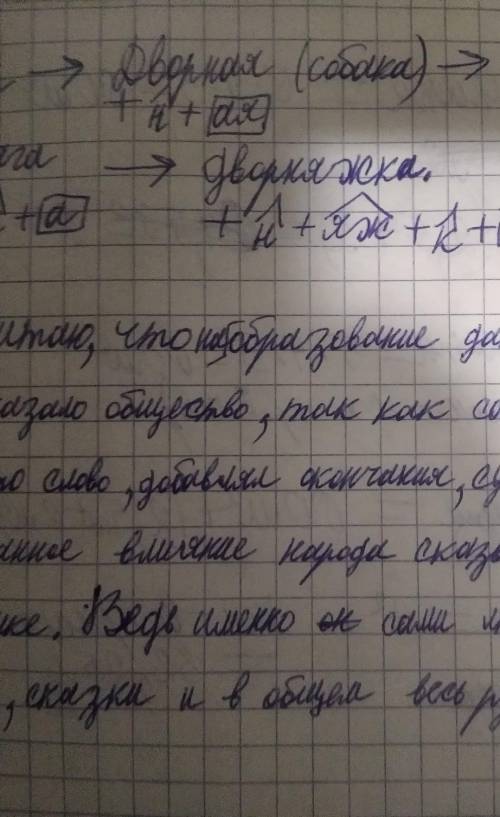 → Дворная (собака) →
+ н + ая
ага → дворняжка.
+ а + н + яж + к +
итаю, что на образование да
казало общество, так как со
о слово, добавлял окончания, су
анное влияние народа сказы
ке. Ведь именно он сами лю
, сказки и в общем весь ру